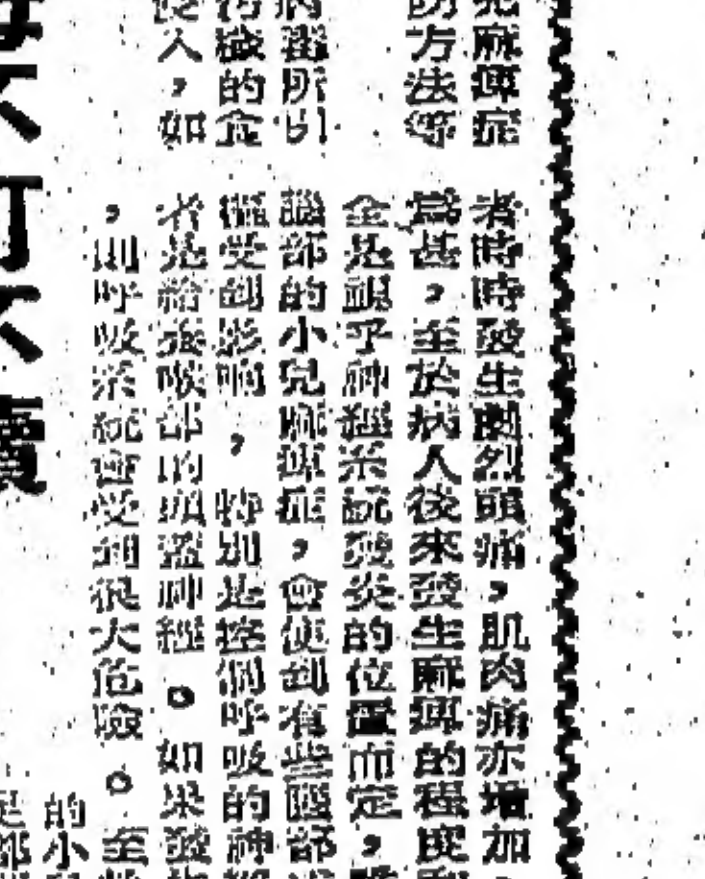 兒麻痺症
防方法等
病毒所引
污染的食
侵入，如
者時時發生劇烈頭痛，肌肉痛亦增加，
為甚，至於病人後來發生麻痺的程度
全是視乎神經系統發炎的位置而定，
腦部的小兒麻痺症，會使到有些腦部
受到影响，特別是控制呼吸的神
者是給養喉部的神經。如果發
，則呼吸系統會受到很大危險。至
的小
不可不讀